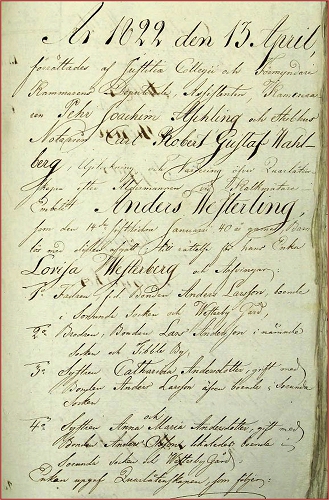 År 1822 den 13 April,
förrättades af Justitiæ Collegii och Förmyndare
Kammarens Deputerade, Assistenten, Kamrera
ren Pehr Joachim Ahling och Stadens
Notarien Carl Robert Gustaf Wahl-
berg, Upteckning och Värdering öfver Qvarlåten-
skapen efter
Embetet Anders Westerling
som den 14de sistledne Januari 40 år gammal
med döden afgått, Att efterlefva hans Enka
Lovisa Westerberg och Arfvingar:
1o Fadren, f.d. Bonden Anders Larsson, boende
i Socken och Westerby Gård,
2o Brodren, Bonden Lars Andersson i nämnde
Socken och Tibble By,
3o Systren Catharina Andersdotter, gift med
Bonden Anders Larsson äfven boende i
Socken
och
4o Systren Anna Maria Andersdotter, gift med
Bonden Anders Olsson likaledes boende i
Socken och Westerby Gård;
Enkan uppgaf Qvarlåtenskapen, som följer: